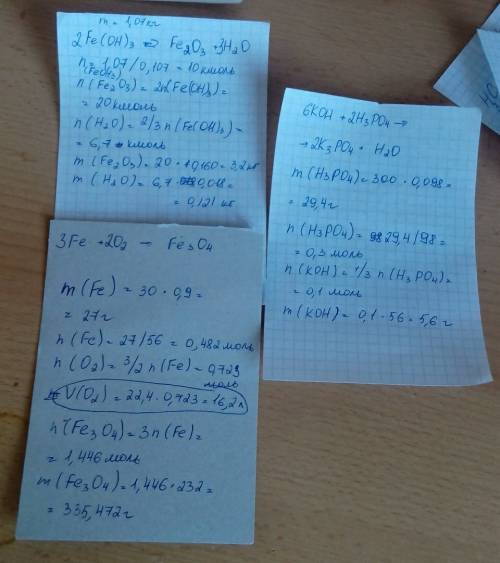 m = 1,07кг
2Fe(OH)3 ⇒ Fe2O3 + 3H2O
n = 1,07/0,107 = 10 кмоль
(Fe(OH)3)
n(Fe2O3) = 2n(Fe(OH)3) =
= 20 кмоль
n(H2O) = 2/3 n(Fe(OH)3) =
= 6,7 кмоль
m(Fe2O3) = 20 · 0,160 = 3,2 кг
m(H2O) = 6,7 · 0,018 =
= 0,121 кг
6KOH + 2H3PO4 →
→ 2K3PO4 + H2O
m(H3PO4) = 300 · 0,098 =
= 29,4г
n(H3PO4) = 29,4/98 =
= 0,3 моль
n(KOH) = 1/3 n(H3PO4) =
= 0,1 моль
m(KOH) = 0,1 · 56 = 5,6 г
3Fe + 2O2 → Fe3O4
m(Fe) = 30 · 0,9 =
= 27г
n(Fe) = 27/56 = 0,482 моль
n(O2) = 3/2 n(Fe) = 0,723
моль
V(O2) = 22,4 · 0,723 = 16,2 л
n(Fe3O4) = 3n(Fe) =
= 1,446 моль
m(Fe3O4) = 1,446 · 232 =
= 335,472г